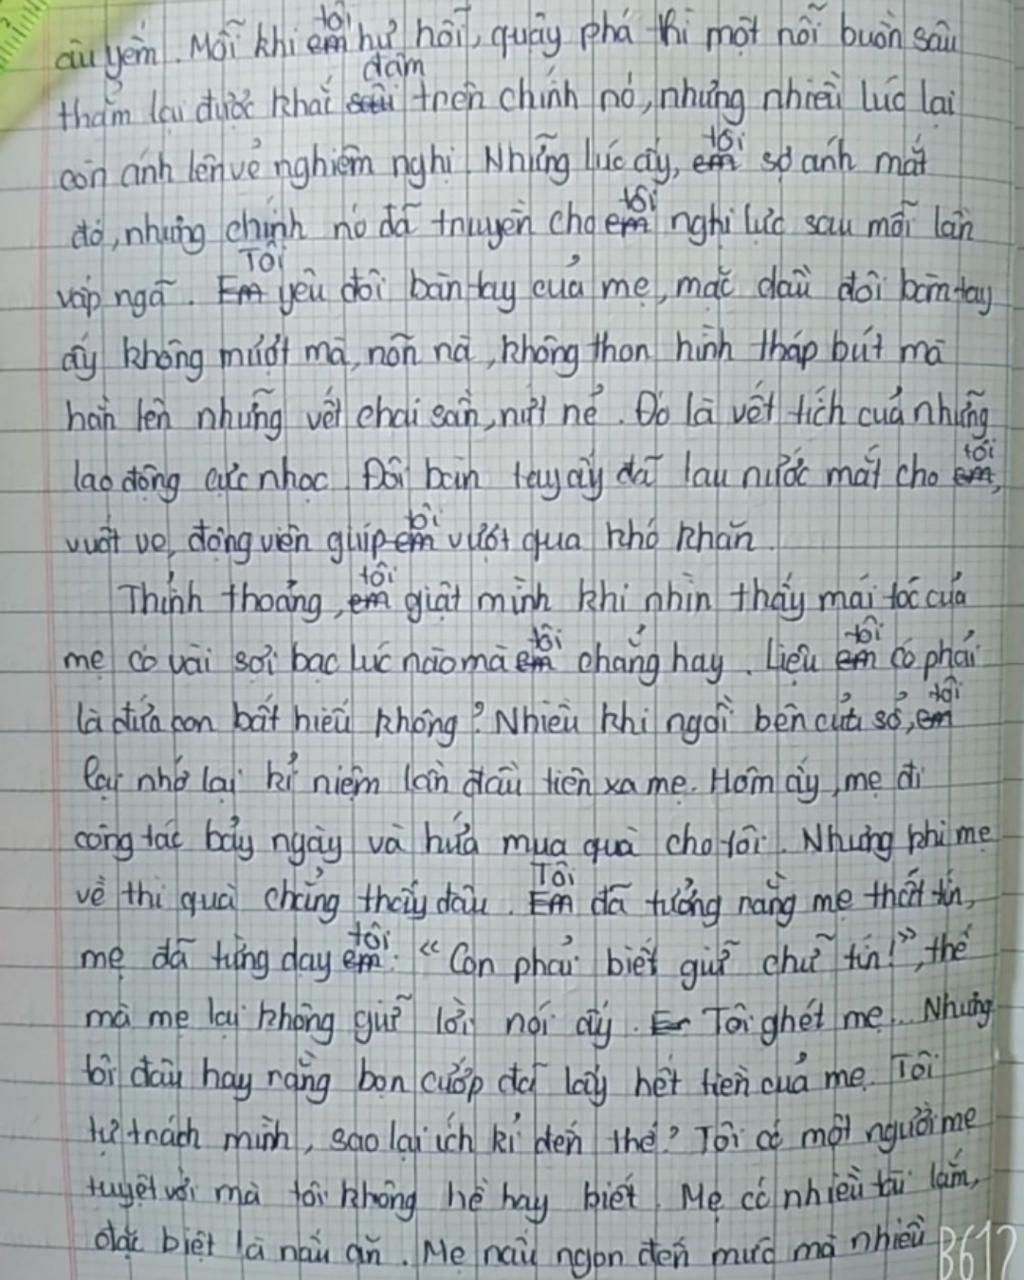 âu yếm. Mỗi khi tôi hư hỗi, quậy phá thì một nỗi buồn sâu
thẳm lại được khắc đậm trên chính nó, nhưng nhiều lúc lại
còn ánh lên vẻ nghiêm nghị. Những lúc ấy, tôi sợ ánh mắt
đó, nhưng chính nó đã truyền cho tôi nghị lực sau mỗi lần
vấp ngã. Tôi yêu đôi bàn tay của mẹ, mặc dầu đôi bàn tay
ấy không mướt mà, nõn nà, không thon hình tháp bút mà
hằn lên những vết chai sần, nứt nẻ. Đó là vết tích của những
lao động cực nhọc. Đôi bàn tay ấy đã lau nước mắt cho tôi,
vuốt ve, động viên giúp tôi vượt qua khó khăn.
Thỉnh thoảng, tôi giật mình khi nhìn thấy mái tóc của
mẹ có vài sợi bạc lúc nào mà tôi chẳng hay. Liệu tôi có phải
là đứa con bất hiếu không? Nhiều khi ngồi bên cửa sổ, tôi
lại nhớ lại kỉ niệm lần đầu tiên xa mẹ. Hôm ấy, mẹ đi
công tác bảy ngày và hứa mua quà cho tôi. Nhưng khi mẹ
về thì quà chẳng thấy đâu. Tôi đã tưởng rằng mẹ thất tín,
mẹ đã từng dạy tôi: “Con phải biết giữ chữ tín!”, thế
mà mẹ lại không giữ lời nói ấy. Tôi ghét mẹ... Nhưng
tôi đâu hay rằng bọn cướp đã lấy hết tiền của mẹ. Tôi
tự trách mình, sao lại ích kỉ đến thế? Tôi có một người mẹ
tuyệt vời mà tôi không hề hay biết. Mẹ có nhiều tài lắm,
đặc biệt là nấu ăn. Mẹ nấu ngon đến mức mà nhiều
B612